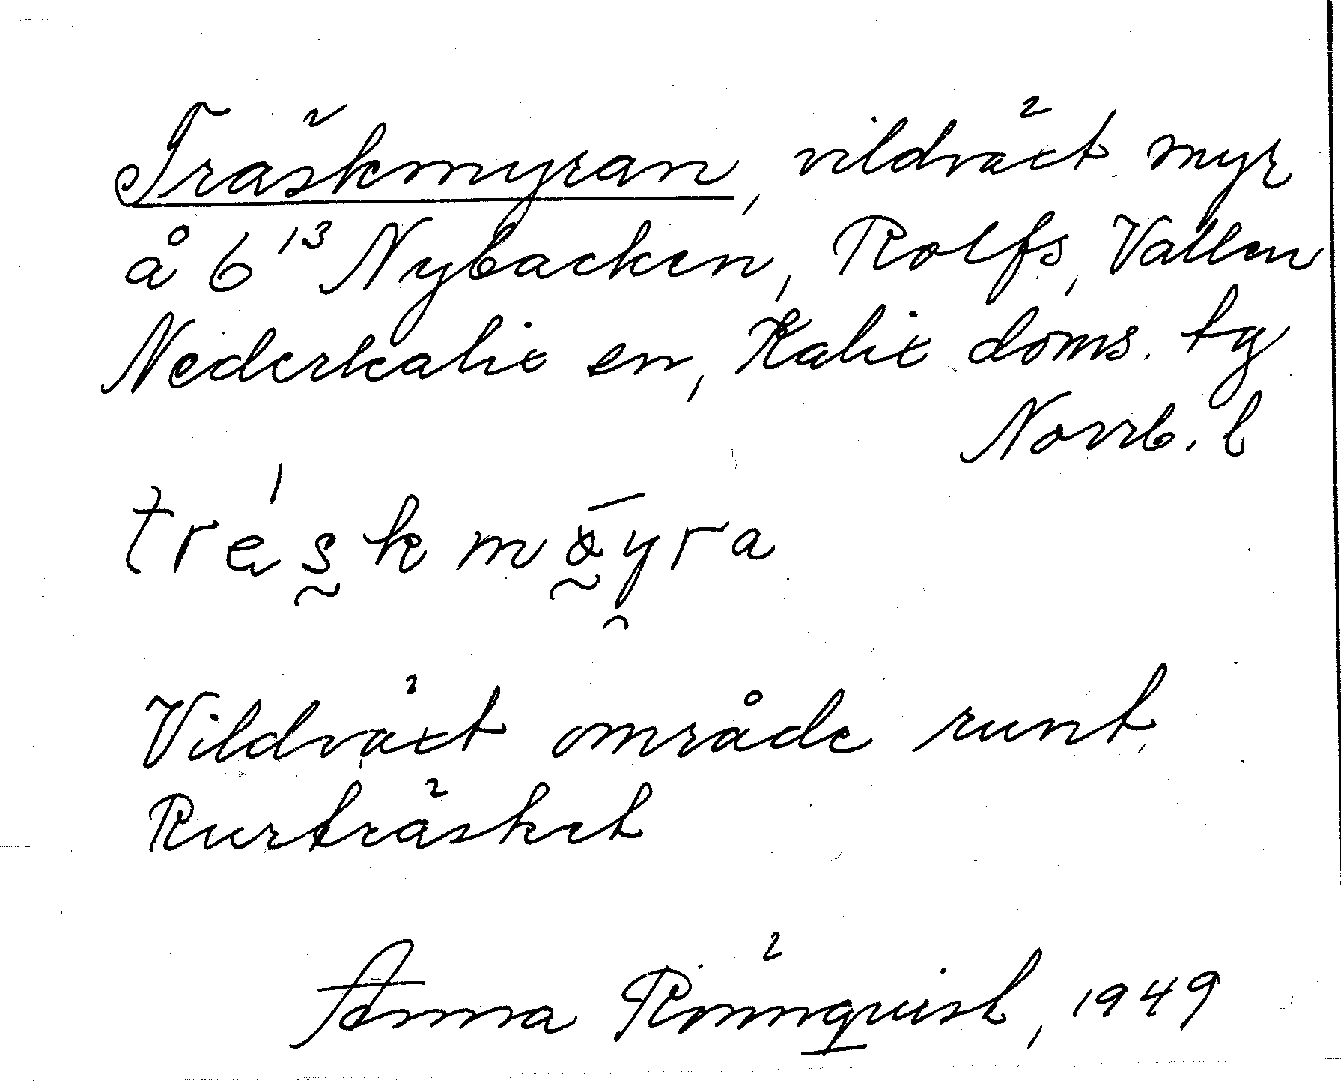 Träskmyran, vildväxt myr
å 6¹³ Nybacken, Rolfs, Vallen
Nederkalix sn, Kalix doms. tg
Norrb. l
Vildväxt område runt
Rurträsket
Anna Rönnquist, 1949